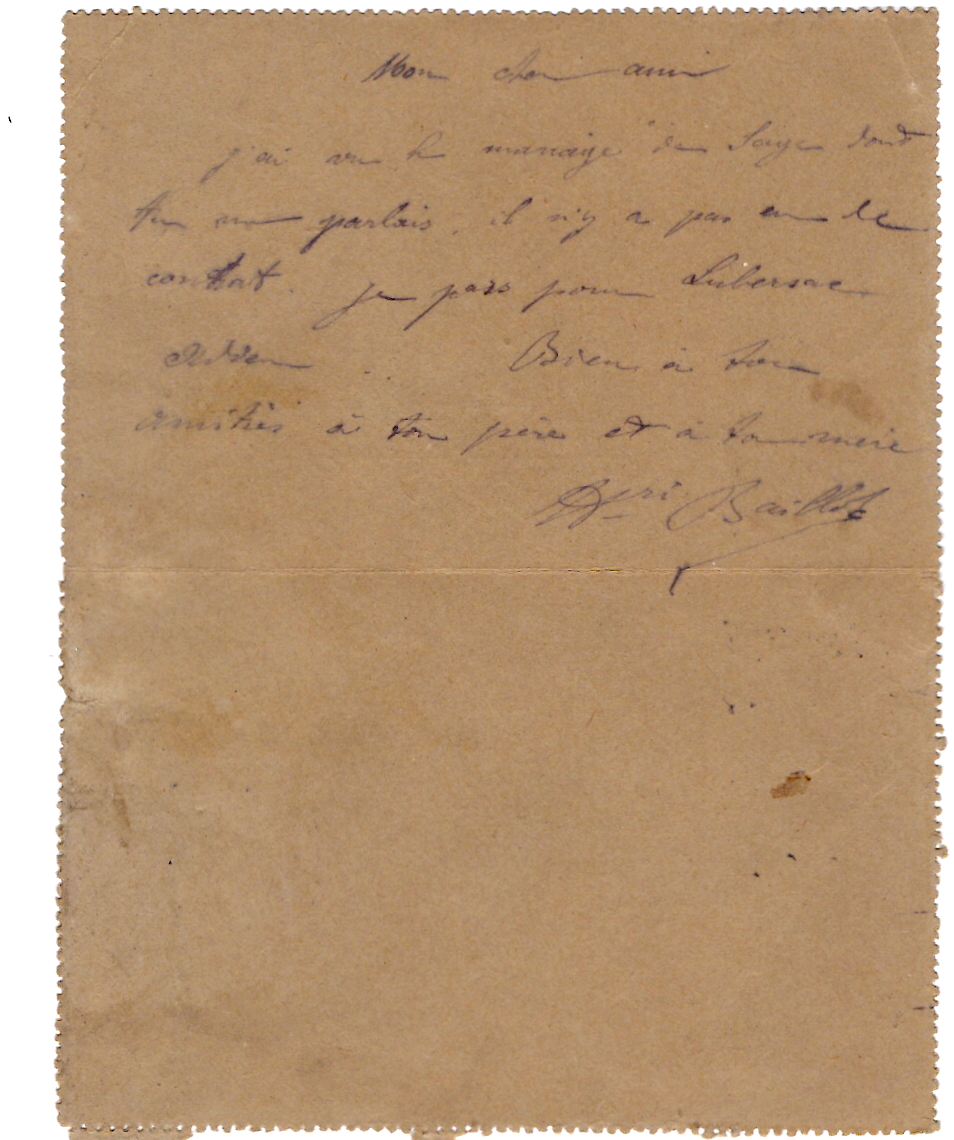 Mon cher ami
j'ai vu le mariage de Sage dont
tu me parlais, il n'y a pas eu de
contrat. je pars pour Lubersac
Adieu Bien à toi
amitiés à ton père et à ta mère
Hri Baillot